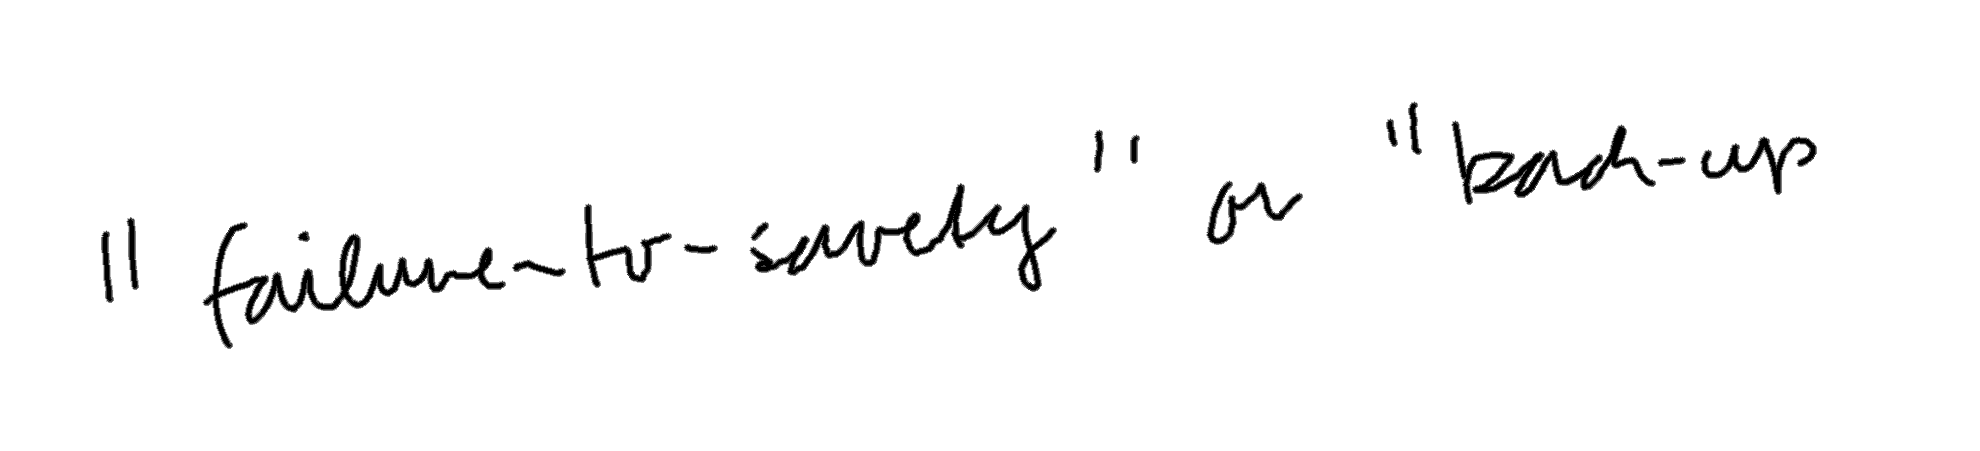 "failure-to-savety" or "back-up